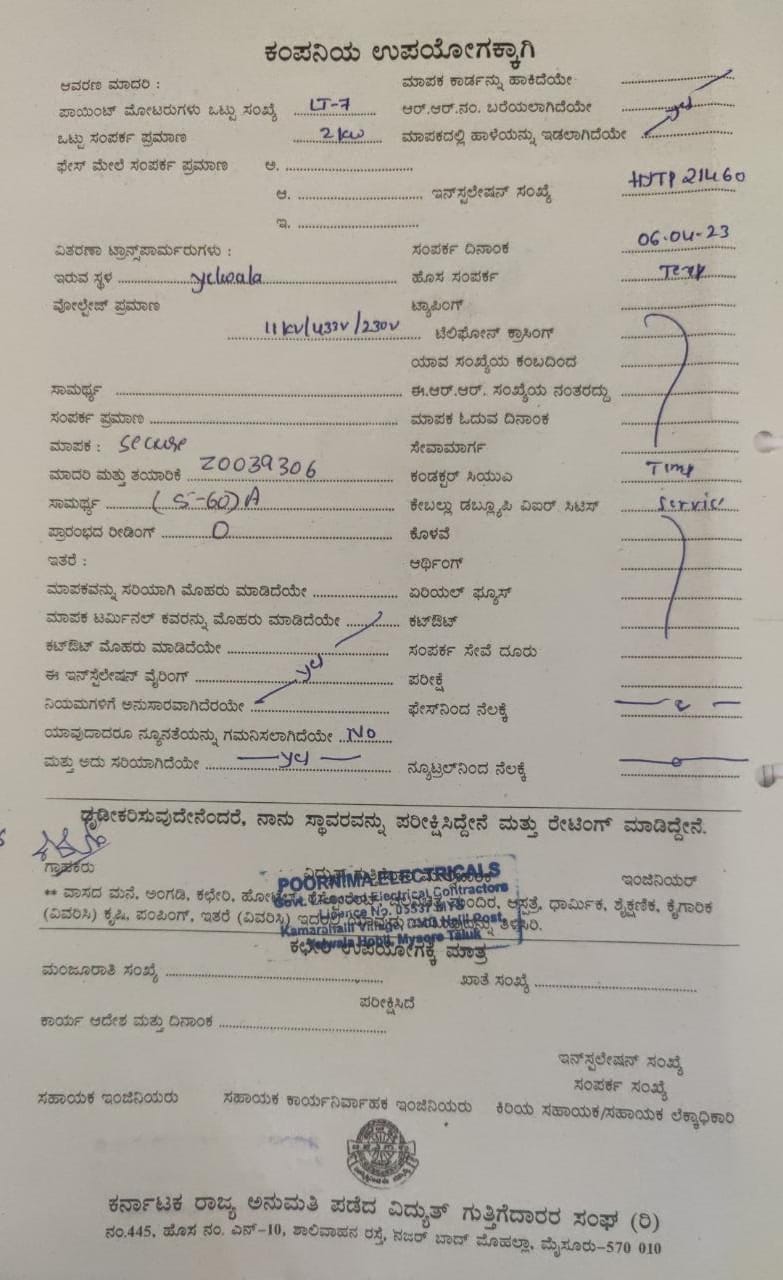 ಕಂಪನಿಯ ಉಪಯೋಗಕ್ಕಾಗಿ
ಆವರಣ ಮಾದರಿ : ಮಾಪಕ ಕಾರ್ಡನ್ನು ಹಾಕಿದೆಯೇ
ಪಾಯಿಂಟ್ ಮೋಟರುಗಳು ಒಟ್ಟು ಸಂಖ್ಯೆ LT-7 ಆರ್.ಆರ್.ನಂ. ಬರೆಯಲಾಗಿದೆಯೇ yes
ಒಟ್ಟು ಸಂಪರ್ಕ ಪ್ರಮಾಣ 2kw ಮಾಪಕದಲ್ಲಿ ಹಾಳೆಯನ್ನು ಇಡಲಾಗಿದೆಯೇ
ಫೇಸ್ ಮೇಲೆ ಸಂಪರ್ಕ ಪ್ರಮಾಣ ಅ.
ಆ. ಇನ್‌ಸ್ಪಲೇಷನ್ ಸಂಖ್ಯೆ HJTP 21460
ಇ.
ವಿತರಣಾ ಟ್ರಾನ್ಸ್‌ಪಾರ್ಮರುಗಳು : ಸಂಪರ್ಕ ದಿನಾಂಕ 06-04-23
ಇರುವ ಸ್ಥಳ yelwala ಹೊಸ ಸಂಪರ್ಕ Temp
ವೋಲ್ಟೇಜ್ ಪ್ರಮಾಣ ಟ್ಯಾಪಿಂಗ್
11kv/433v/230v ಟೆಲಿಫೋನ್ ಕ್ರಾಸಿಂಗ್
ಯಾವ ಸಂಖ್ಯೆಯ ಕಂಬದಿಂದ
ಸಾಮರ್ಥ್ಯ ಈ.ಆರ್.ಆರ್. ಸಂಖ್ಯೆಯ ನಂತರದ್ದು
ಸಂಪರ್ಕ ಪ್ರಮಾಣ ಮಾಪಕ ಓದುವ ದಿನಾಂಕ
ಮಾಪಕ : secure ಸೇವಾಮಾರ್ಗ
ಮಾದರಿ ಮತ್ತು ತಯಾರಿಕೆ Z0039306 ಕಂಡಕ್ಟರ್ ಸಿಯುಎ Temp
ಸಾಮರ್ಥ್ಯ (5-60)A ಕೇಬಲ್ಲು ಡಬ್ಲ್ಯೂಪಿ ವಿಐರ್ ಸಿಟಿಸ್ Service
ಪ್ರಾರಂಭದ ರೀಡಿಂಗ್ 0 ಕೊಳವೆ
ಇತರೆ : ಆರ್ಥಿಂಗ್
ಮಾಪಕವನ್ನು ಸರಿಯಾಗಿ ಮೊಹರು ಮಾಡಿದೆಯೇ ಏರಿಯಲ್ ಫ್ಯೂಸ್
ಮಾಪಕ ಟರ್ಮಿನಲ್ ಕವರನ್ನು ಮೊಹರು ಮಾಡಿದೆಯೇ ಕಟ್‌ಔಟ್
ಕಟ್‌ಔಟ್ ಮೊಹರು ಮಾಡಿದೆಯೇ ಸಂಪರ್ಕ ಸೇವೆ ದೂರು
ಈ ಇನ್‌ಸ್ಪೆಲೇಷನ್ ವೈರಿಂಗ್ yes ಪರೀಕ್ಷೆ
ನಿಯಮಗಳಿಗೆ ಅನುಸಾರವಾಗಿದೆರಯೇ ಫೇಸ್‌ನಿಂದ ನೆಲಕ್ಕೆ
ಯಾವುದಾದರೂ ನ್ಯೂನತೆಯನ್ನು ಗಮನಿಸಲಾಗಿದೆಯೇ No
ಮತ್ತು ಅದು ಸರಿಯಾಗಿದೆಯೇ yes ನ್ಯೂಟ್ರಲ್‌ನಿಂದ ನೆಲಕ್ಕೆ
ಧೃಡೀಕರಿಸುವುದೇನೆಂದರೆ, ನಾನು ಸ್ಥಾವರವನ್ನು ಪರೀಕ್ಷಿಸಿದ್ದೇನೆ ಮತ್ತು ರೇಟಿಂಗ್ ಮಾಡಿದ್ದೇನೆ.
ಗ್ರಾಹಕರು ಇಂಜಿನಿಯರ್
POORNIMA ELECTRICALS
Govt. Licenced Electrical Contractors
Licence No. 05537 MYS
Kamarahalli Village, Post
Yelwala Hobli, Mysore Taluk
** ವಾಸದ ಮನೆ, ಅಂಗಡಿ, ಕಛೇರಿ, ಹೋಟೆಲ್, ಮಂದಿರ, ಆಸ್ಪತ್ರೆ, ಧಾರ್ಮಿಕ, ಶೈಕ್ಷಣಿಕ, ಕೈಗಾರಿಕ
(ವಿವರಿಸಿ) ಕೃಷಿ, ಪಂಪಿಂಗ್, ಇತರೆ (ವಿವರಿಸಿ) ತಿಳಿಸಿರಿ.
ಕಛೇರಿ ಉಪಯೋಗಕ್ಕೆ ಮಾತ್ರ
ಮಂಜೂರಾತಿ ಸಂಖ್ಯೆ ಖಾತೆ ಸಂಖ್ಯೆ
ಪರೀಕ್ಷಿಸಿದೆ
ಕಾರ್ಯ ಆದೇಶ ಮತ್ತು ದಿನಾಂಕ
ಇನ್‌ಸ್ಪಲೇಷನ್ ಸಂಖ್ಯೆ
ಸಂಪರ್ಕ ಸಂಖ್ಯೆ
ಸಹಾಯಕ ಇಂಜಿನಿಯರು ಸಹಾಯಕ ಕಾರ್ಯನಿರ್ವಾಹಕ ಇಂಜಿನಿಯರು ಕಿರಿಯ ಸಹಾಯಕ/ಸಹಾಯಕ ಲೆಕ್ಕಾಧಿಕಾರಿ
ಕರ್ನಾಟಕ ರಾಜ್ಯ ಅನುಮತಿ ಪಡೆದ ವಿದ್ಯುತ್ ಗುತ್ತಿಗೆದಾರರ ಸಂಘ (ರಿ)
ನಂ.445, ಹೊಸ ನಂ. ಎನ್-10, ಶಾಲಿವಾಹನ ರಸ್ತೆ, ನಜರ್ ಬಾದ್ ಮೊಹಲ್ಲಾ, ಮೈಸೂರು-570 010